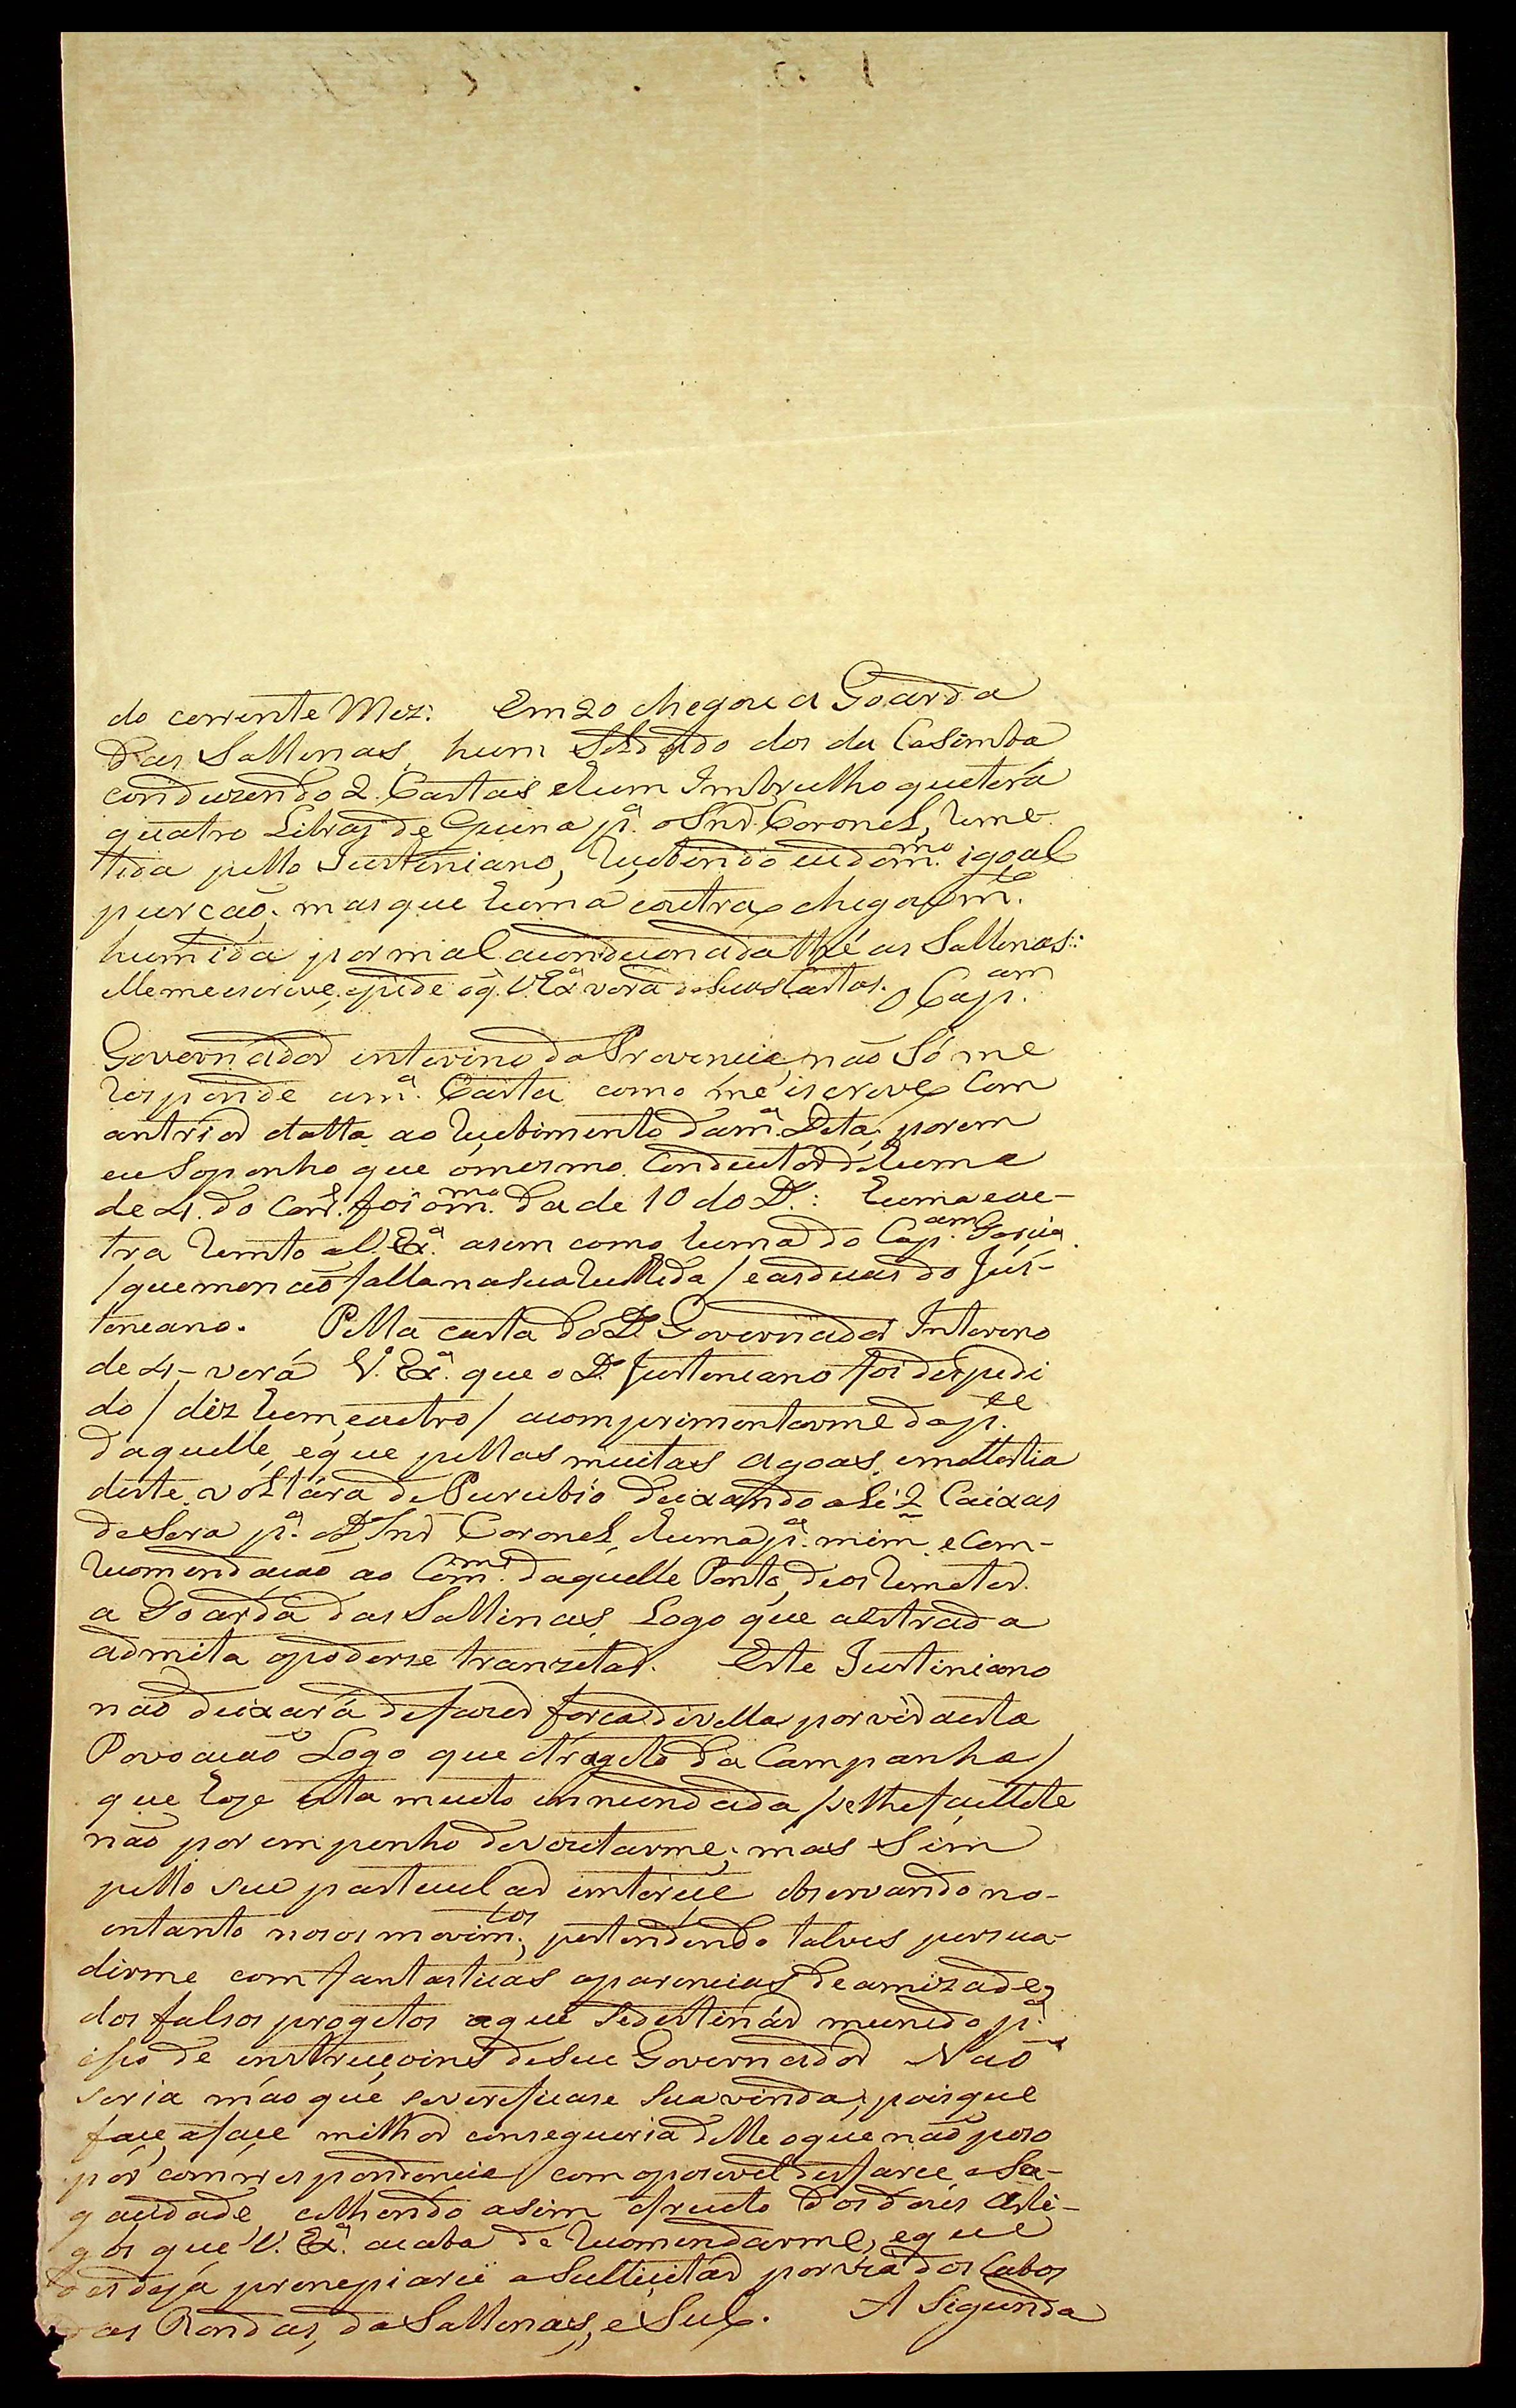 do corrente Mez: Em 20 chegou a Goarda
das Sallinas, hum Soldado dos da Casimba
conduzendo 2 Cartas e hum Imbrulho que terá
quatro Libras de Quina pª. o Snr̃ Coronel, reme-
tida pello Justiniano, recebindo eu do mmo. igoal
purcaõ. mas que huma e outra chegou mte.
humida por mal acondicionada thé as Sallinas:
elle me escreve, e pide o q̃. V. Exª verá de Suas Cartas. O Capam.
Governador interino da Provincia, não Só me
responde a mª. Carta como me escreve Com
antrior datta ao recebimento da mª. Dita, porem
eu Soponho que o mesmo Conductor de huma
de 4. do Corre. foi o mmo. da de 10 do Do.: huma e ou-
tra remeto a V. Exª. asim como huma do Capam. Garcia
/ que mencaõ falla na sua rellida / e as duas do Jus-
teneano. Pella carta do Do. Governador Intereno
de 4 - verá V. Exª. que o Do. Justeneano foi despedi
do / diz hum, e outro / a comprimentarme da pte.
daquelle, e que pellas muitas agoas, e mollestia
deste voltára de Purubio deixando ali 2 Caixas
de Sera pª. o Do. Snr̃ Coronel, e huma pª. mim, e Com-
recomendacaõ ao Comme. daquelle Ponto, de os remeter
a Goarda das Sallinas, Logo que a estrada
admita o poderse tranzitar. Este Justiniano
não deixará de fazer forca de vella por vir a esta
Povoacaõ Logo que o trageto da Campanha /
que hoje esta muito innundada / se lhe facellite
não por empenho de vezitarme; mas Sim
pello seu particular interece observando no-
entanto nosos movimtos., pertendendo talves persua-
dirme com fantasticas aparencias de amizade,
dos falsos progetos a que Se destinár munido pª.
iso de instrucoins de seu Governador Naõ
seria máo que se vereficase Sua vinda, pois que
face, a face milhor conseguiria delle o que naõ poso
por correspondencia / com o posivel desfarce e Sa-
gacidade, colhendo asim o fructo dos dois Arti-
gos que V. Exª. acaba de recomendarme, e que
desde já prencipiarei a Sullicitar por via dos Cabos
das Rondas, da Sallinas, e Sul. A Segunda